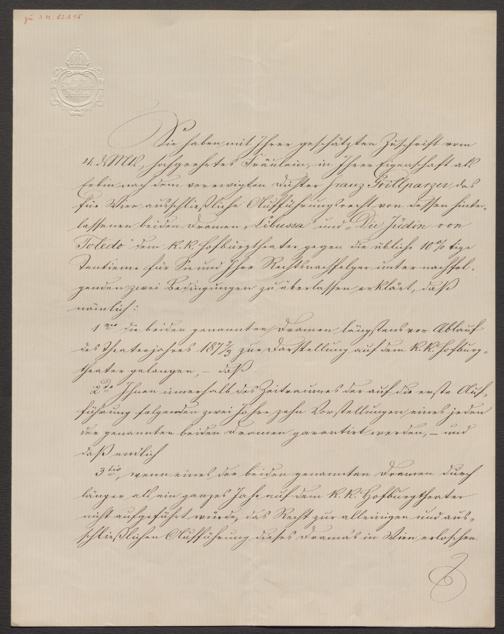 Sie haben mit Ihrer geschätzten Zuschrift vom
4. d. Mts., hochgeehrtes Fräulein, in Ihrer Eigenschaft als
Erbin nach dem verewigten Dichter Franz Grillparzer das
für Wien ausschließliche Aufführungsrecht von dessen hinter-
lassenen beiden Dramen „Libussa“ und „Die Jüdin von
Toledo“ dem K. K. Hofburgtheater gegen die übliche 10%tige
Tantieme für Sie und Ihre Rechtsnachfolger unter nachfol-
genden zwei Bedingungen zu überlassen erklärt, daß
nämlich:
1mo die beiden genannten Dramen längstens vor Ablauf
des Theaterjahres 1872/3 zur Darstellung auf dem K. K. Hofburg-
theater gelangen, – daß
2do Ihnen innerhalb des Zeitraumes der auf die erste Auf-
führung folgenden zwei Jahre zehn Vorstellungen eines jeden
der genannten beiden Dramen garantirt werden, – und
daß endlich
3tio, wenn eines der beiden genannten Dramen durch
länger als ein ganzes Jahr auf dem K. K. Hofburgtheater
nicht aufgeführt würde, das Recht zur alleinigen und aus-
schließlichen Aufführung dieses Drama's in Wien erloschen